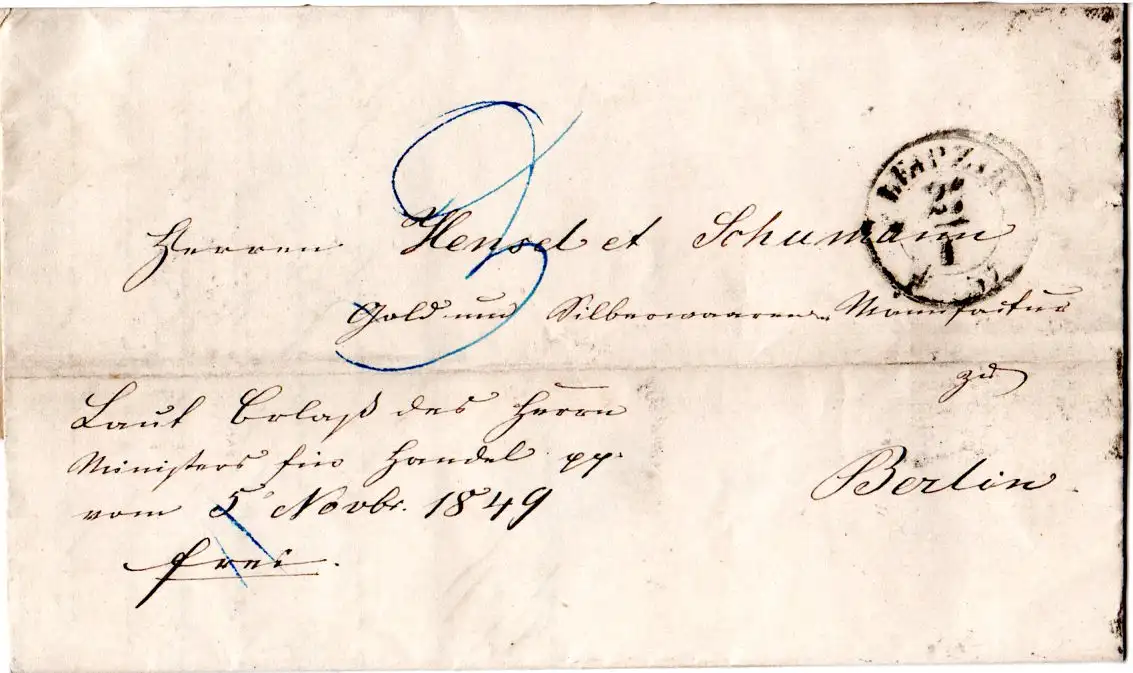 LEIPZIG
Herren Hensel et Schumann
Gold und Silberwaaren-Manufactur
zu
Berlin.
Laut Erlaß des Herrn
Ministers für Handel pp.
vom 5 Novbr. 1849
frei.
3